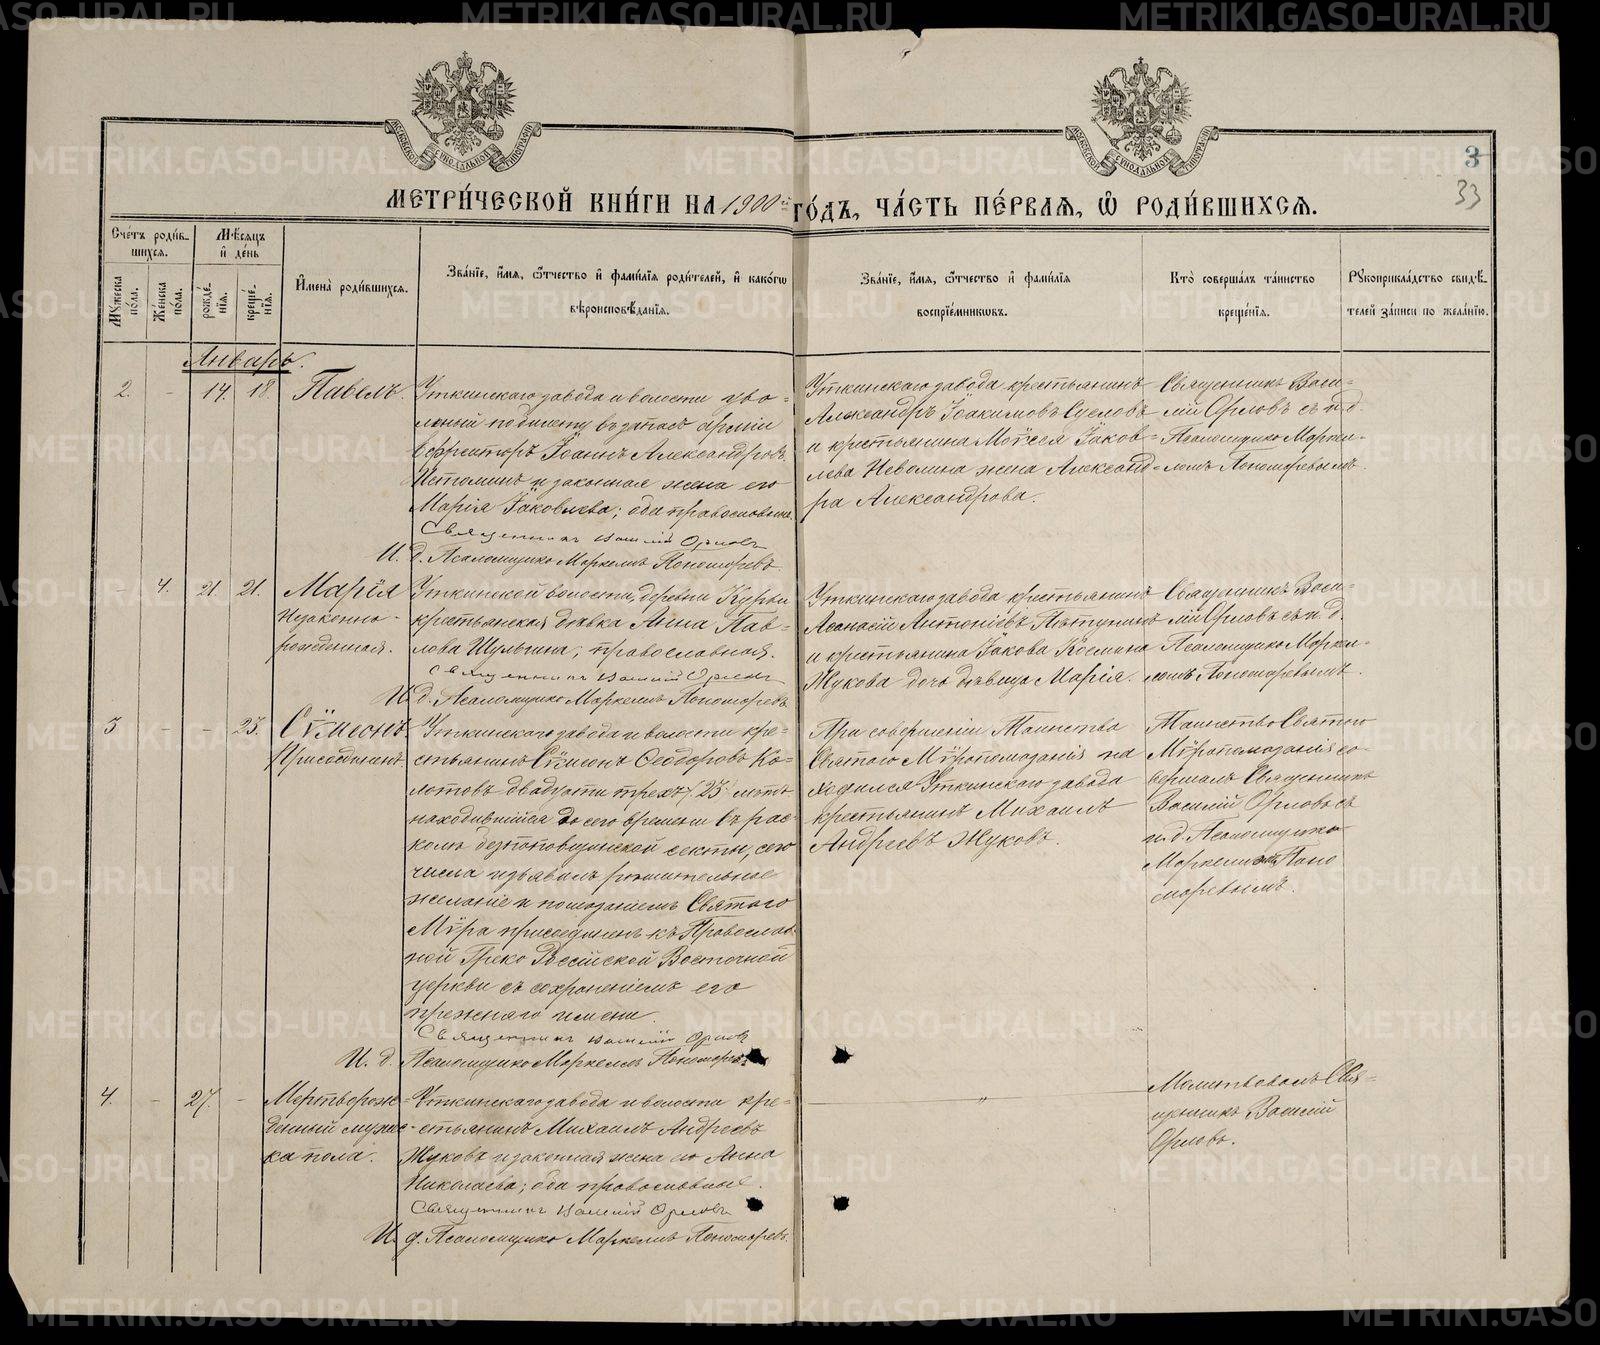 METRIKI.GASO-URAL.RU
МОСКОВСКОЙ СѴНОДАЛЬНОЙ ТИПОГРАФІИ
МОСКОВСКОЙ СѴНОДАЛЬНОЙ ТИПОГРАФІИ
3
33
МЕТРИ́ЧЕСКОЙ КНИ́ГИ НА 1900й ГО́ДЪ, ЧА́СТЬ ПЕ́РВАЯ, Ѡ҆ РОДИ́ВШИХСЯ.
Сче́тъ роди́в-
шихся.
Мѣ́сяцъ
и҆ де́нь
Му́жеска по́ла.
Же́нска по́ла.
рожде́-
нїя.
креще́-
нїя.
И҆мена̀ роди́вшихся.
Зва́нїе, и҆́мя, ѻ҆́тчество и҆ фами́лїя роди́телей, и҆ како́гѡ
вѣроисповѣ́данїя.
Зва́нїе, и҆́мя, ѻ҆́тчество и҆ фами́лїя
воспрїе́мникѡвъ.
Кто̀ соверша́лъ та́инство
креще́нїя.
Рукоприкла́дство свидѣ́-
телей за́писи по жела́нїю.
Январь.
2. - 14. 18. Павелъ.
Уткинскаго завода и волости уво-
леный по билету въ запасъ арміи
ефрейторъ Іоаннъ Александровъ
Истоминъ и законная жена его
Марія Іаковлева; оба православные.
Священникъ Василій Орловъ
И. д. Псаломщика Маркеллъ Пономаревъ.
Уткинскаго завода крестьянинъ
Александръ Іоакимовъ Сусловъ
и крестьянина Моѵсея Іаков-
лева Неволина жена Александ-
ра Александрова.
Священникъ Васи-
лій Орловъ съ и. д.
Псаломщика Маркел-
ломъ Пономаревымъ.
- 4. 21. 21. Марія
Незаконно-
рожденная.
Уткинской волости, деревни Курьи
крестьянская дѣвка Анна Пав-
лова Шульгина, православная.
Священникъ Василій Орловъ
И. д. Псаломщика Маркеллъ Пономаревъ.
Уткинскаго завода крестьянинъ
Аѳанасій Антоніевъ Пѣтунинъ
и крестьянина Іакова Космина
Жукова дочь дѣвица Марія.
Священникъ Васи-
лій Орловъ съ и. д.
Псаломщика Маркел-
ломъ Пономаревымъ.
3 - - 23. Сѵмеонъ
Присоединенъ.
Уткинскаго завода и волости кре-
стьянинъ Сѵмеонъ Ѳеодоровъ Ко-
лотовъ двадцати трехъ /23/ лѣтъ
находившійся до сего времени въ рас-
колѣ безпоповщинской секты, сего
числа изъявилъ рѣшительное
желаніе и помазаніемъ Святаго
Мѵра присоединенъ къ Православ-
ной Греко Россійской Восточной
церкви съ сохраненіемъ его
прежняго имени.
Священникъ Василій Орловъ
И. д. Псаломщика Маркеллъ Пономаревъ
При совершеніи Таинства
Святаго Мѵропомазанія на-
ходился Уткинскаго завода
крестьянинъ Михаилъ
Андреевъ Жуковъ.
Таинство Святаго
Мѵропомазанія со-
вершалъ Священникъ
Василій Орловъ съ
и. д. Псаломщика
Маркелломъ Поно
маревымъ.
4. - 27. - Мертворож-
денный мужес-
ка пола.
Уткинскаго завода и волости кре-
стьянинъ Михаилъ Андреевъ
Жуковъ и законная жена его Анна
Николаева; оба православные.
Священникъ Василій Орловъ
И. д. Псаломщика Маркеллъ Пономаревъ.
Молитвовалъ Свя-
щенникъ Василій
Орловъ.